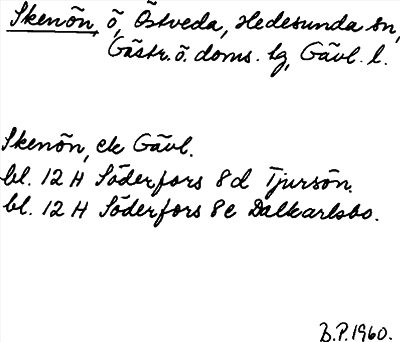 Skenön, ö, Östveda, Hedesunda sn,
Gästr. ö. doms. lg, Gävl. l.
Skenön, ek Gävl.
bl. 12 H Söderfors 8d Tjursön.
bl. 12 H Söderfors 8e Dalkarlsbo.
B.P. 1960.